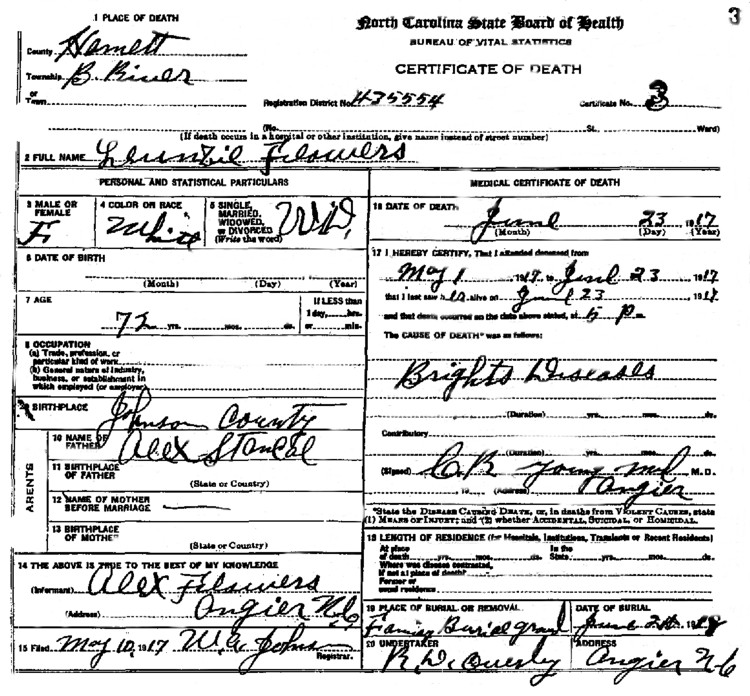 3
1 PLACE OF DEATH
North Carolina State Board of Health
BUREAU OF VITAL STATISTICS
CERTIFICATE OF DEATH
County Harnett
Township B. River
or
Town
Registration District No. 435554
Certificate No. 3
(No. St. Ward)
(If death occurs in a hospital or other institution, give name instead of street number)
2 FULL NAME Flowers
PERSONAL AND STATISTICAL PARTICULARS
3 MALE OR FEMALE F.
4 COLOR OR RACE White
5 SINGLE, MARRIED, WIDOWED, or DIVORCED (Write the word) Wid,
6 DATE OF BIRTH
(Month) (Day) (Year)
7 AGE
72 yrs. mos. ds.
If LESS than 1 day, hrs. or min.
8 OCCUPATION
(a) Trade, profession, or
particular kind of work
(b) General nature of industry,
business, or establishment in
which employed (or employer)
9 BIRTHPLACE Johnson County
PARENTS
10 NAME OF FATHER Alex
11 BIRTHPLACE OF FATHER
(State or Country)
12 NAME OF MOTHER BEFORE MARRIAGE
13 BIRTHPLACE OF MOTHER
(State or Country)
14 THE ABOVE IS TRUE TO THE BEST OF MY KNOWLEDGE
(Informant) Alex Flowers
(Address) Angier N.C
15 Filed May 10, 1917 W.A. Johns
Registrar.
MEDICAL CERTIFICATE OF DEATH
16 DATE OF DEATH June 23 1917
(Month) (Day) (Year)
17 I HEREBY CERTIFY, That I attended deceased from
May 1 to June 23 1917
that I last saw her alive on June 23
and that death occurred on the date above stated, at 5 P m.
The CAUSE OF DEATH* was as follows:
Brights Diseases
(Duration) yrs. mos. ds.
Contributory
(Duration) yrs. mos. ds.
(Signed) C.R. Young md M.D.
19 (Address) Angier
*State the DISEASE CAUSING DEATH, or, in deaths from VIOLENT CAUSES, state
(1) MEANS OF INJURY; and (2) whether ACCIDENTAL, SUICIDAL, or HOMICIDAL.
18 LENGTH OF RESIDENCE (for Hospitals, Institutions, Transients or Recent Residents)
At place of death yrs. mos. ds. In the State yrs. mos. ds.
Where was disease contracted,
if not at place of death?
Former or
usual residence
19 PLACE OF BURIAL OR REMOVAL
Family Burial ground
DATE OF BURIAL
June 24
20 UNDERTAKER
ADDRESS
Angier N.C